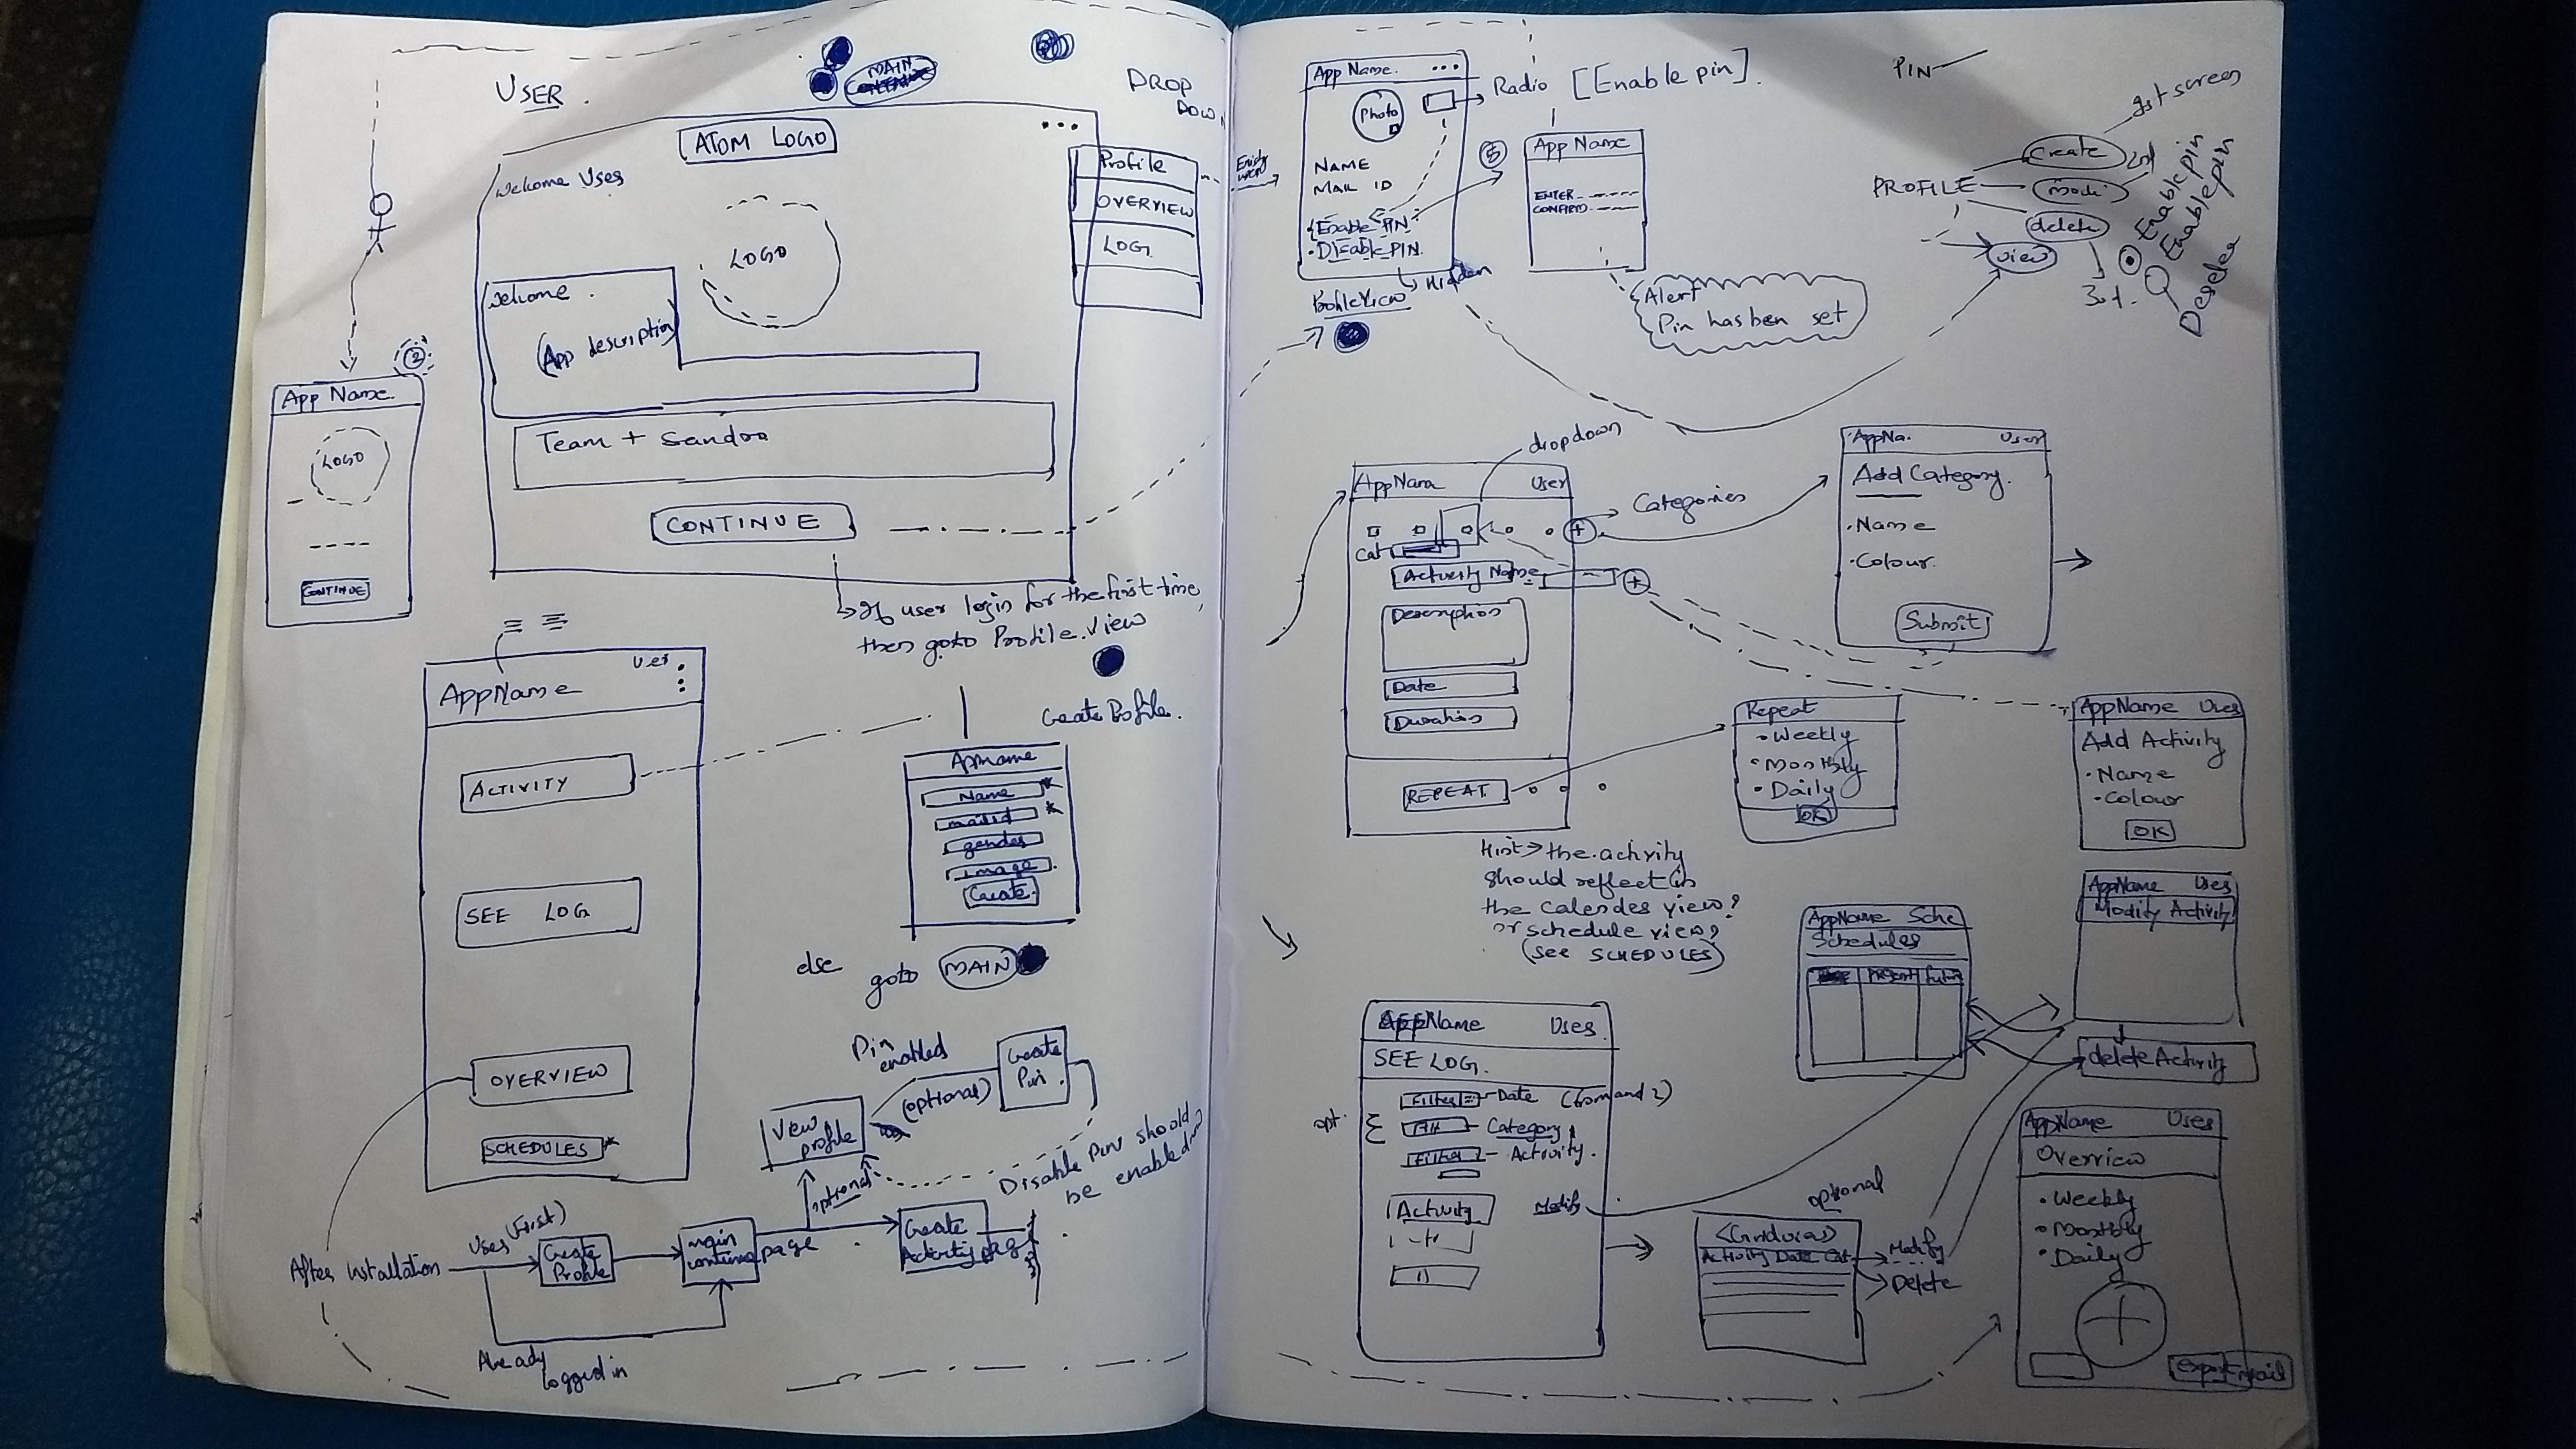 USER
MAIN
DROP
DOWN
ATOM LOGO
Welcome User
LOGO
Welcome
(App description)
Team + Sandra
CONTINUE
Profile
OVERVIEW
LOG
②
App Name
LOGO
CONTINUE
If user login for the first time,
then goto Profile.View
AppName
User
ACTIVITY
SEE LOG
OVERVIEW
SCHEDULES*
Create Profile.
Appname
Name *
mailid *
gender
image
Create
else goto MAIN
Pin enabled
(optional)
Create Pin
View profile
optional
Disable Pin should
be enabled
After installation
User (First)
Create Profile
main continue page
Create Activity page
Already logged in
App Name. ...
Photo
Radio [Enable pin].
NAME
MAIL ID
• Enable PIN
• Disable PIN
Hidden
ProfileView
⑤
App Name
ENTER
CONFIRM
Alert
Pin has ben set
PIN
PROFILE
create
modi
delete
view
1st screen
2nd
3rd.
Enable pin
Enable pin
dropdown
AppName User
+
Categories
Cat
Activity Name
+
Description
Date
Duration
REPEAT
AppNa. User
Add Category.
• Name
• Colour.
Submit
Repeat
• Weekly
• Monthly
• Daily
OK
AppName User
Add Activity
• Name
• Colour
OK
Hint > the activity
should reflect in
the calender view?
or schedule view?
(see SCHEDULES)
AppName Sche
Schedules
PRESENT Future
AppName User
Modify Activity
delete Activity
AppName User
SEE LOG.
opt.
Filter - Date (from and 2)
Filt - Category
Filter - Activity.
Activity
Modify
optional
<Gridview>
Activity Date Cat
Modify
Delete
AppName User
Overview
• Weekly
• Monthly
• Daily
export Email